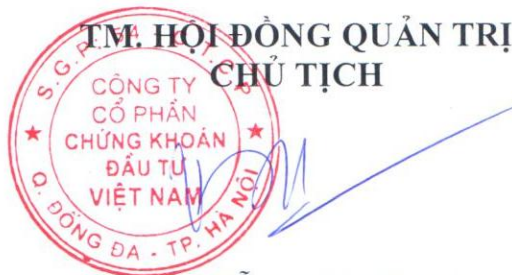 TM. HỘI ĐỒNG QUẢN TRỊ
CHỦ TỊCH
CÔNG TY
CỔ PHẦN
CHỨNG KHOÁN
ĐẦU TƯ
VIỆT NAM
Q. ĐỐNG ĐA - TP. HÀ NỘI